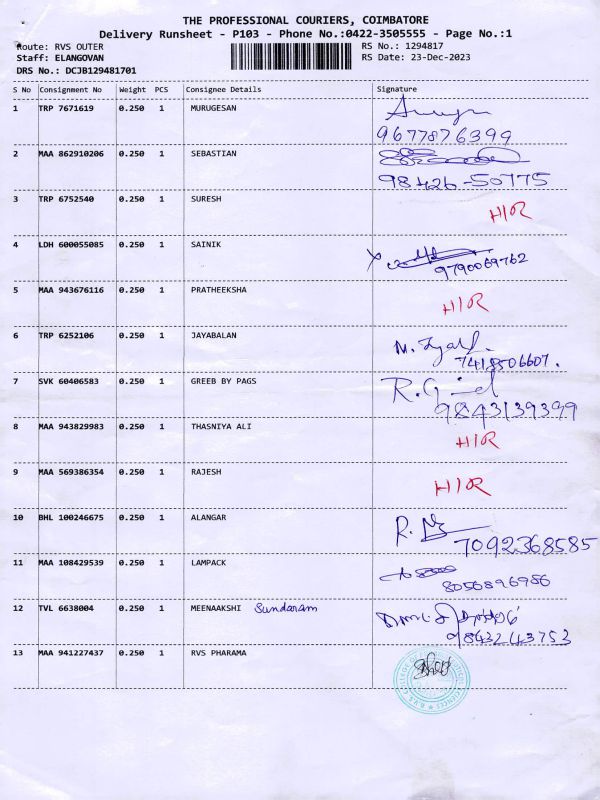 THE PROFESSIONAL COURIERS, COIMBATORE
Delivery Runsheet - P103 - Phone No.:0422-3505555 - Page No.:1
Route: RVS OUTER RS No.: 1294817
Staff: ELANGOVAN RS Date: 23-Dec-2023
DRS No.: DCJB129481701
S No Consignment No Weight PCS Consignee Details Signature
1 TRP 7671619 0.250 1 MURUGESAN
9677876399
2 MAA 862910206 0.250 1 SEBASTIAN
98426-50775
3 TRP 6752540 0.250 1 SURESH H/R
4 LDH 600055085 0.250 1 SAINIK
9790069762
5 MAA 943676116 0.250 1 PRATHEEKSHA H/R
6 TRP 6252106 0.250 1 JAYABALAN
7418506607.
7 SVK 60406583 0.250 1 GREEB BY PAGS
9843139399
8 MAA 943829983 0.250 1 THASNIYA ALI H/R
9 MAA 569386354 0.250 1 RAJESH H/R
10 BHL 100246675 0.250 1 ALANGAR
7092368585
11 MAA 108429539 0.250 1 LAMPACK
8056896986
12 TVL 6638004 0.250 1 MEENAAKSHI Sundaram
9843243753
13 MAA 941227437 0.250 1 RVS PHARAMA